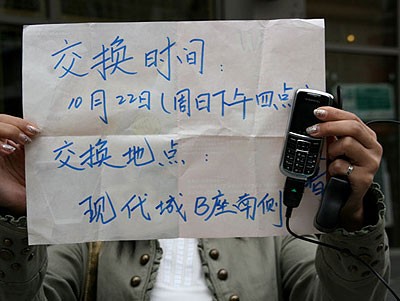 交换时间：
10月22日(周日下午四点)
交换地点：
现代城B座南侧